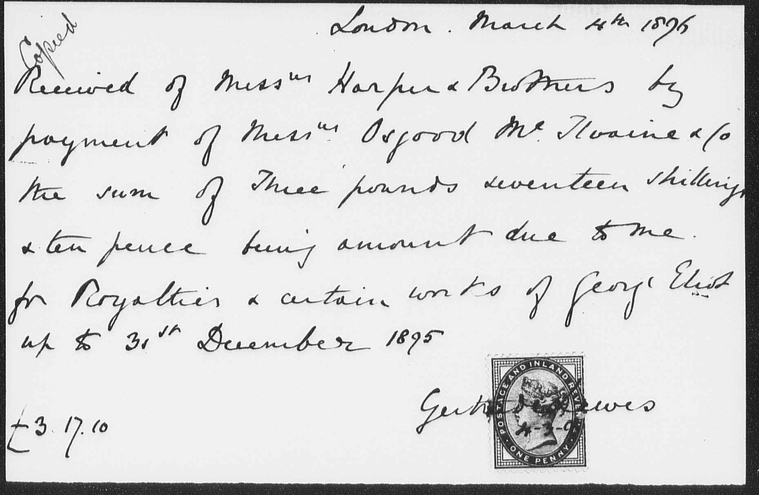 Copied
London. March 4th 1896
Received of Messrs Harper & Brothers by
payment of Messrs Osgood Mc Ilvaine & Co
the sum of Three pounds seventeen shillings
& ten pence being amount due to me
for Royalties & certain works of George Eliot
up to 31st December 1895
Gertrude Lewes
4-3-9
POSTAGE AND INLAND REVENUE
ONE PENNY
£3.17.10